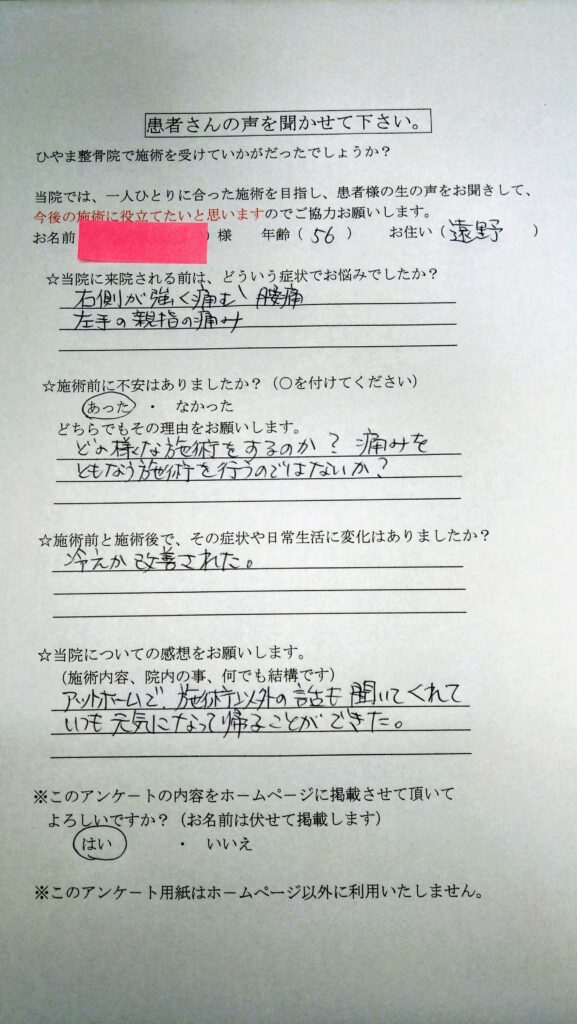 患者さんの声を聞かせて下さい。
ひやま整骨院で施術を受けていかがだったでしょうか？
当院では、一人ひとりに合った施術を目指し、患者様の生の声をお聞きして、
今後の施術に役立てたいと思いますのでご協力お願いします。
お名前 ）様 年齢（ 56 ） お住い（ 遠野 ）
☆当院に来院される前は、どういう症状でお悩みでしたか？
右側が強く痛む 腰痛
左手の親指の痛み
☆施術前に不安はありましたか？（○を付けてください）
あった ・ なかった
どちらでもその理由をお願いします。
どの様な施術をするのか？ 痛みを
ともなう施術を行うのではないか？
☆施術前と施術後で、その症状や日常生活に変化はありましたか？
冷えが改善された。
☆当院についての感想をお願いします。
（施術内容、院内の事、何でも結構です）
アットホームで、施術以外の話も聞いてくれて
いつも元気になって帰ることができた。
※このアンケートの内容をホームページに掲載させて頂いて
よろしいですか？（お名前は伏せて掲載します）
はい ・ いいえ
※このアンケート用紙はホームページ以外に利用いたしません。